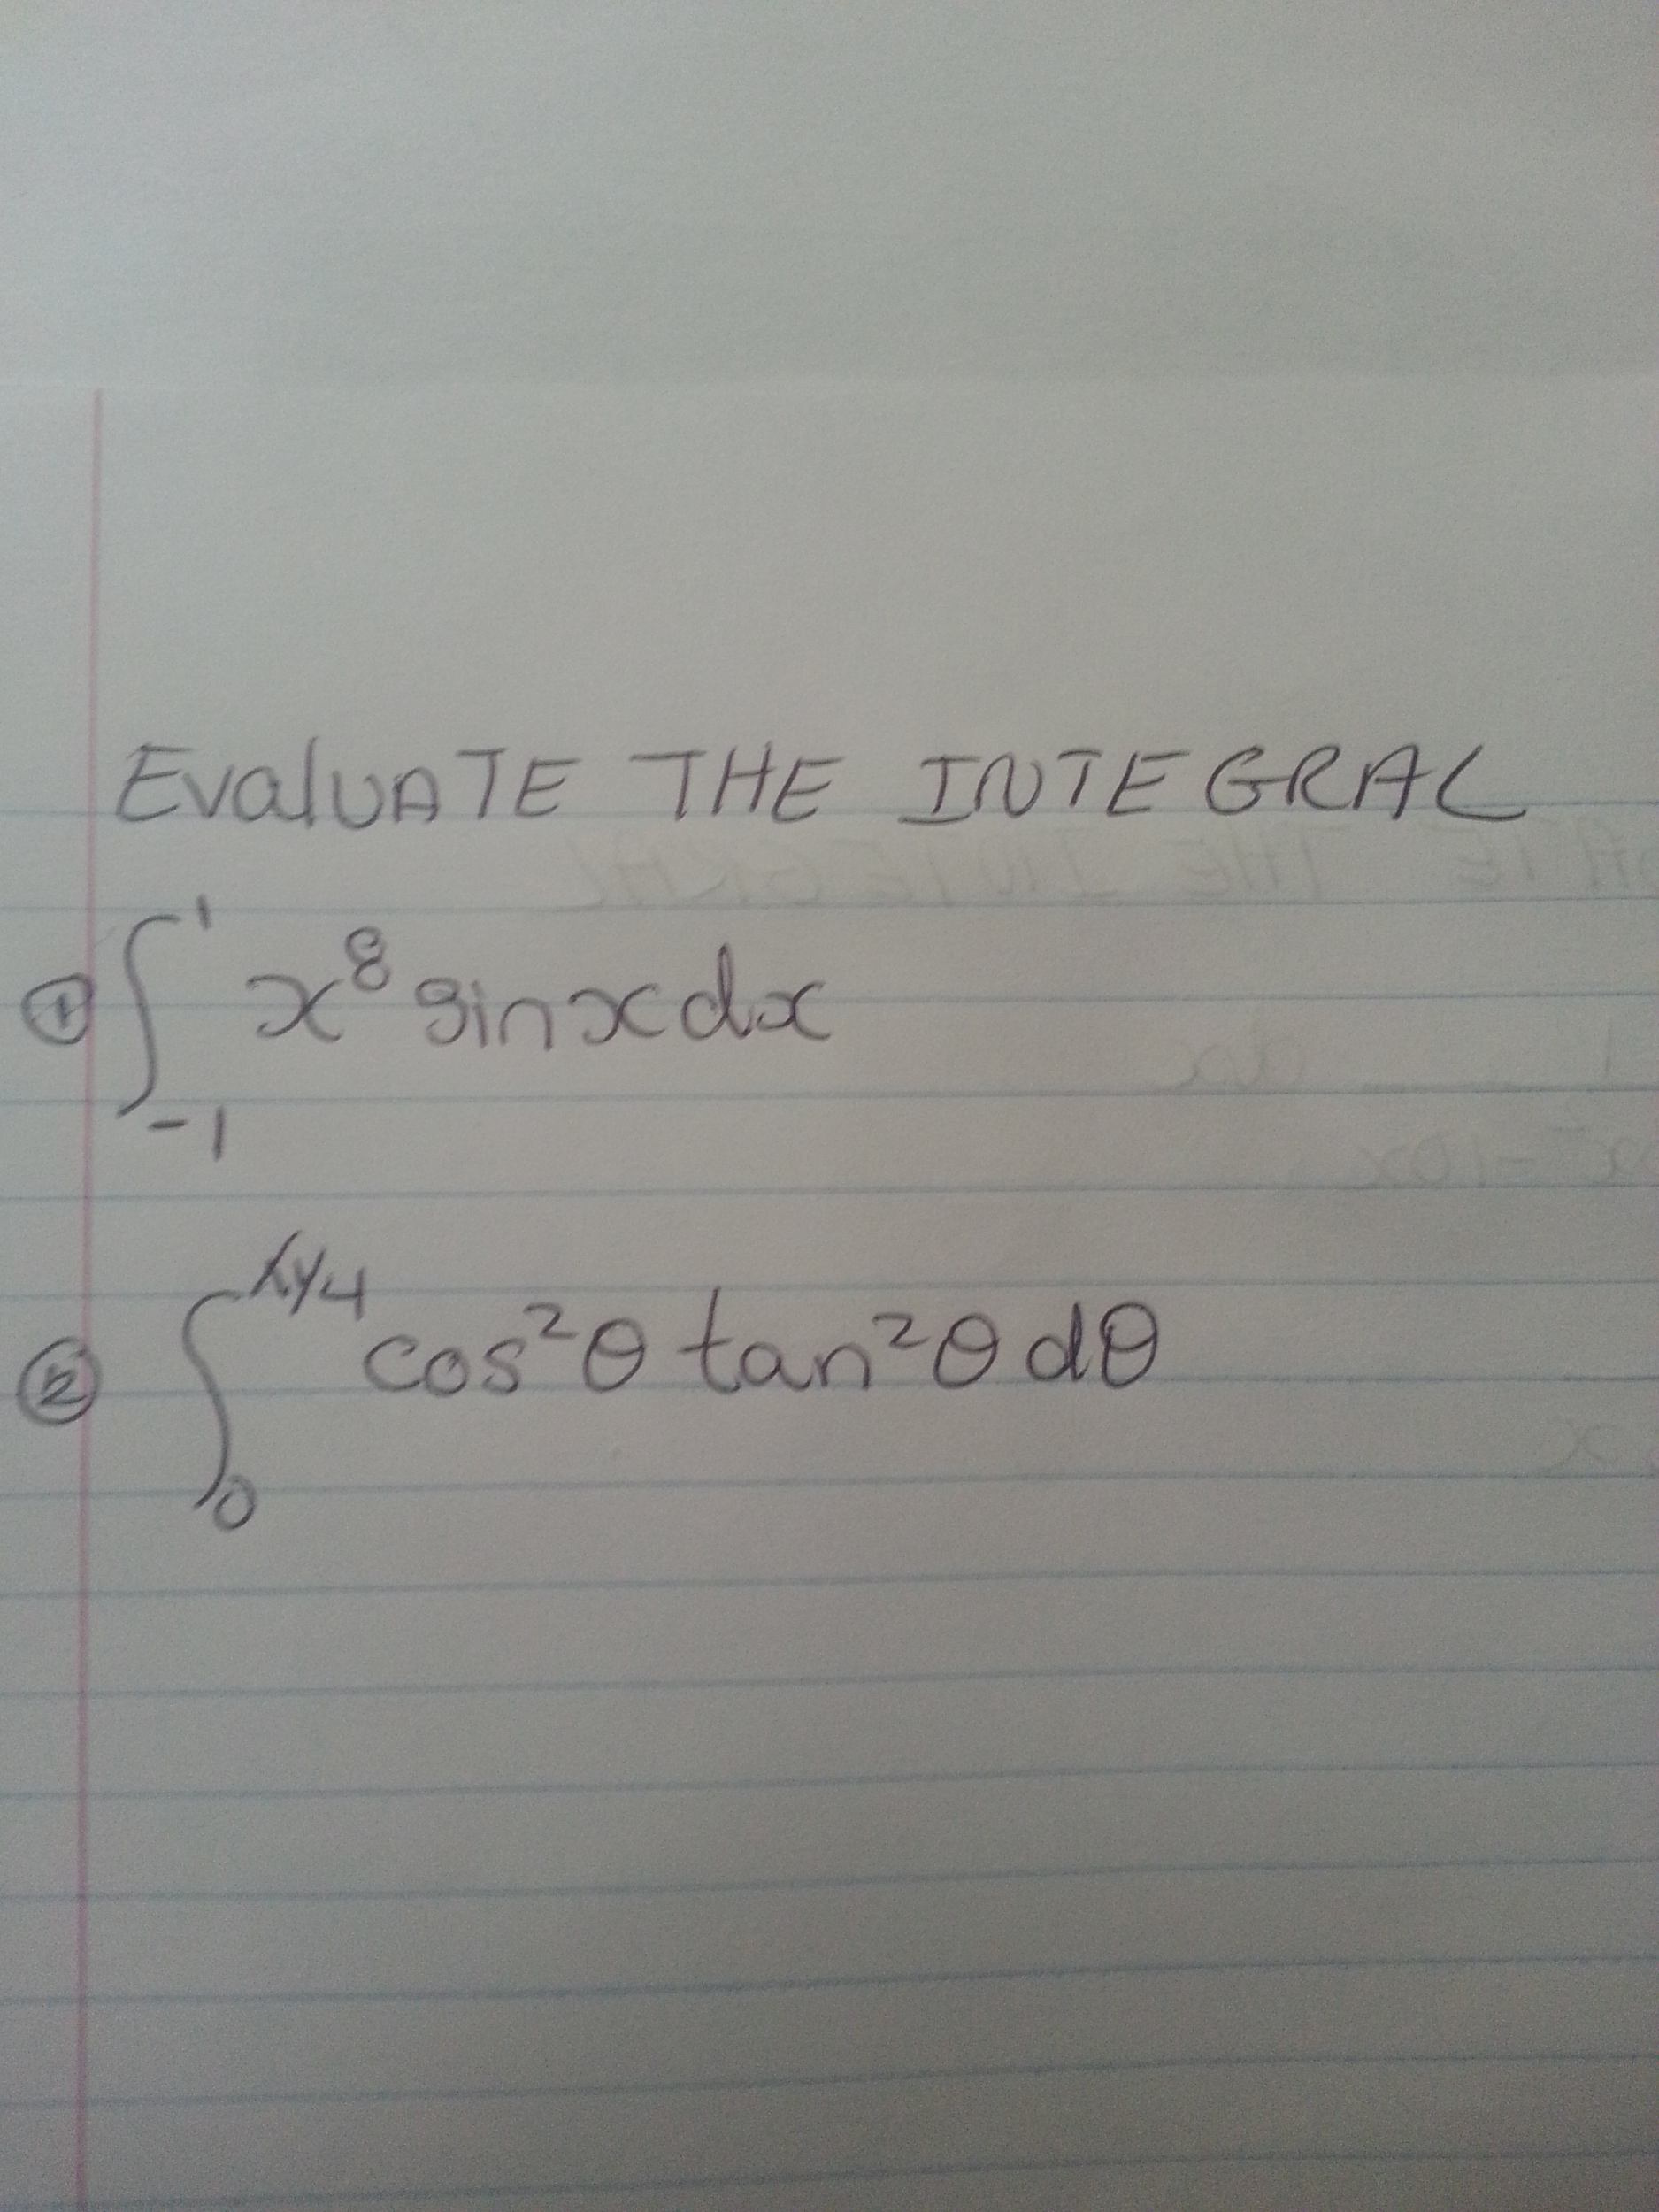 EvaluATE THE INTEGRAL
① ∫₋₁¹ x⁸ sin x dx
② ∫₀^(π/4) cos²θ tan²θ dθ